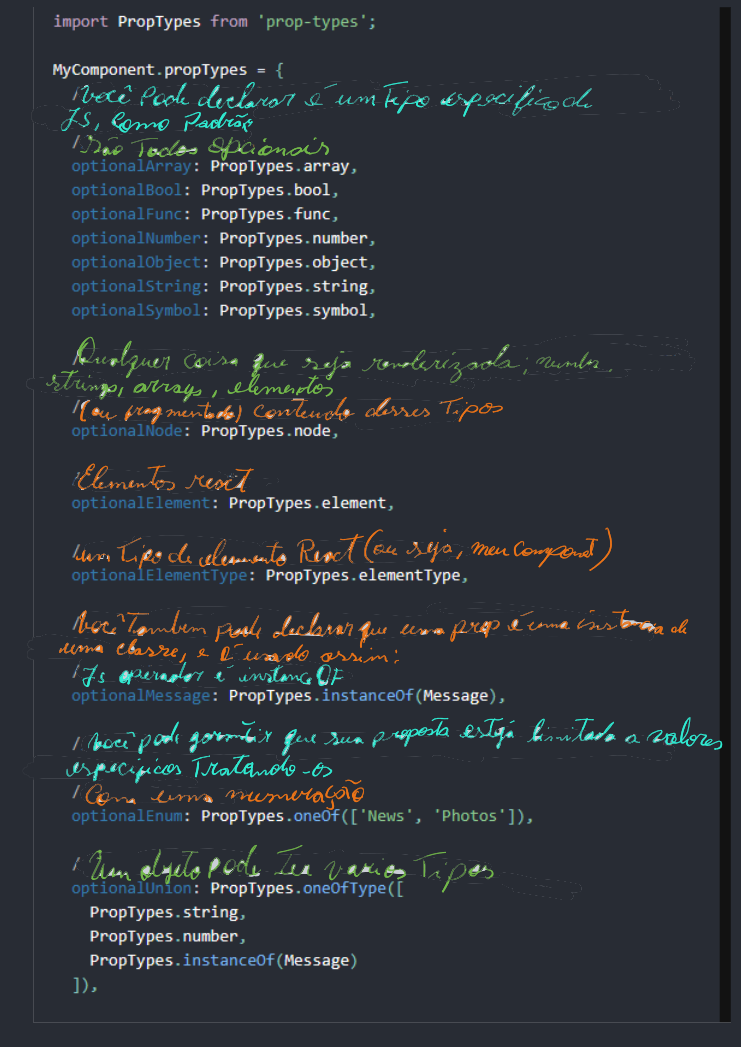 import PropTypes from 'prop-types';
MyComponent.propTypes = {
/você Pode declarar é um Tipo especifico de
JS, Como Padrão
/São Todos Opcionais
optionalArray: PropTypes.array,
optionalBool: PropTypes.bool,
optionalFunc: PropTypes.func,
optionalNumber: PropTypes.number,
optionalObject: PropTypes.object,
optionalString: PropTypes.string,
optionalSymbol: PropTypes.symbol,
/Qualquer coisa que seja renderizada; numbr
strings, arrays, elementos
/(ou fragmentado) Contendo desses Tipos
optionalNode: PropTypes.node,
/Elementos react
optionalElement: PropTypes.element,
/um Tipo de elemento React (ou seja, meu Componet)
optionalElementType: PropTypes.elementType,
/Você Tambem pode declarar que uma prop é uma de
uma classe, e é usado assim:
/Js operador é instancOF
optionalMessage: PropTypes.instanceOf(Message),
/você pode garantir que sua proposta esteja limitada a valores
especificos Tratando-os
/Com uma numeração
optionalEnum: PropTypes.oneOf(['News', 'Photos']),
/Um objeto Pode Ter varios Tipos
optionalUnion: PropTypes.oneOfType([
PropTypes.string,
PropTypes.number,
PropTypes.instanceOf(Message)
]),